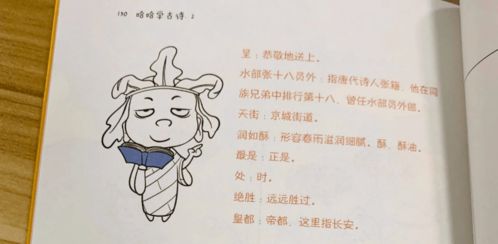 150 哈哈学古诗 2
呈：恭敬地送上。
水部张十八员外：指唐代诗人张籍，他在同
族兄弟中排行第十八，曾任水部员外郎。
天街：京城街道。
润如酥：形容春雨滋润细腻。酥，酥油。
最是：正是。
处：时。
绝胜：远远胜过。
皇都：帝都，这里指长安。